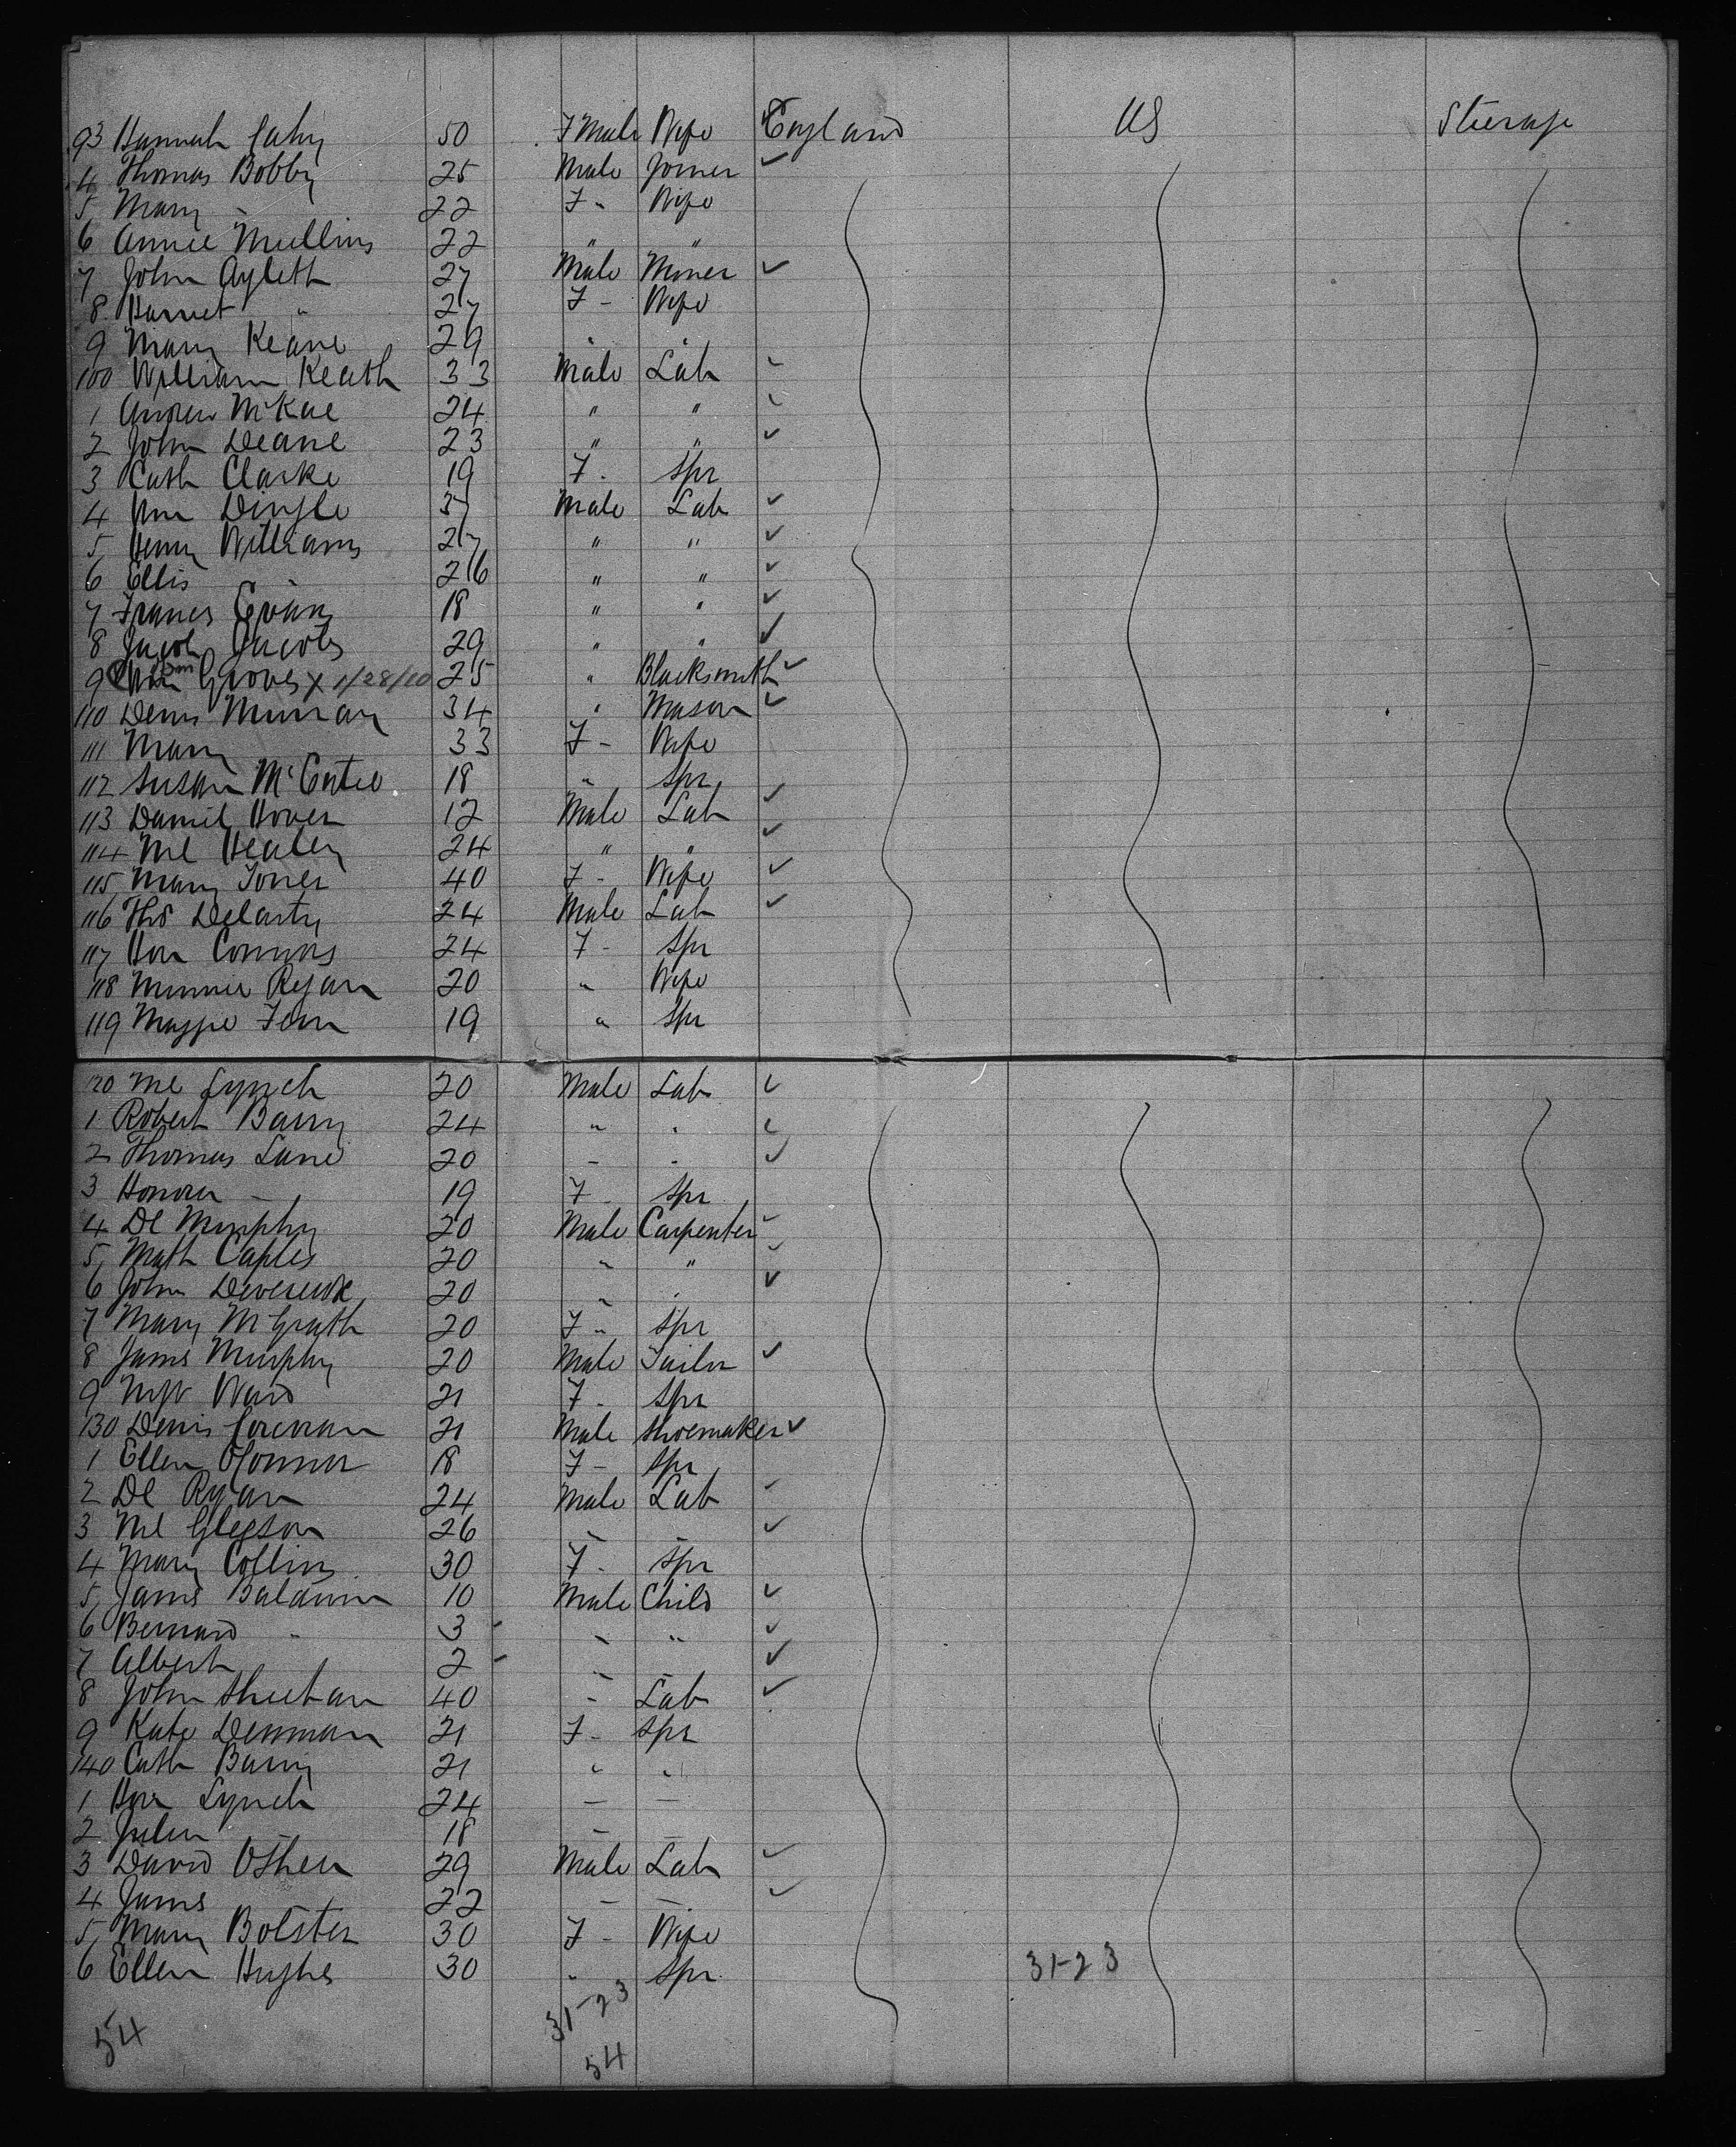 93 Hannah Cahy 50 F Male Wife England US Steerage
4 Thomas Bobby 25 Male Joiner ✓
5 Mary - 22 F - Wife
6 Annie Mullins 22 " "
7 John Ayleth 27 Male Miner ✓
8 Harriet " 27 F - Wife
9 Mary Keane 29 " "
100 William Keath 33 Male Lab ✓
1 Andrew McKae 24 " " ✓
2 John Deane 23 " " ✓
3 Cath Clarke 19 F - Spr
4 Wm Dingle 37 Male Lab ✓
5 Henry Williams 27 " " ✓
6 Ellis " 26 " " ✓
7 Francis Evans 18 " " ✓
8 Jacob Jacobs 29 " " ✓
9 Wm Groves X 1/28/10 25 " Blacksmith ✓
110 Denis Murray 34 " Mason ✓
111 Mary 33 F - Wife
112 Susan McEntee 18 " Spr
113 Daniel Hover 12 Male Lab ✓
114 Ml Healey 24 " " ✓
115 Mary Jones 40 F - Wife ✓
116 Thos Delarty 24 Male Lab ✓
117 Hon Connors 24 F - Spr
118 Minnie Ryan 20 " Wife
119 Maggie Fenn 19 " Spr
120 Ml Lynch 20 Male Lab ✓
1 Robert Barry 24 " " ✓
2 Thomas Lane 20 " " ✓
3 Honora - 19 F - Spr
4 Dl Murphy 20 Male Carpenter ✓
5 Math Caples 20 " " ✓
6 John Devereux 20 " " ✓
7 Mary McGrath 20 F " Spr
8 James Murphy 20 Male Tailor ✓
9 Ward 21 F - Spr
130 Denis Corcoran 21 Male Shoemaker ✓
1 Ellen OConnor 18 F - Spr
2 Dl Ryan 24 Male Lab ✓
3 Ml Gleeson 26 " " ✓
4 Mary Collins 30 F - Spr
5 James Baldwin 10 Male Child ✓
6 Bernard " 3 " " ✓
7 Albert 2 " " ✓
8 John Sheehan 40 " Lab ✓
9 Kate Denman 21 F - Spr
140 Cath Barry 21 " "
1 Hon Lynch 24 - -
2 Julia - 18 - -
3 David OShea 29 Male Lab ✓
4 James 22 - - ✓
5 Mary Bolster 30 F - Wife
6 Ellen Hughes 30 " Spr 31-23
54 31-23
54